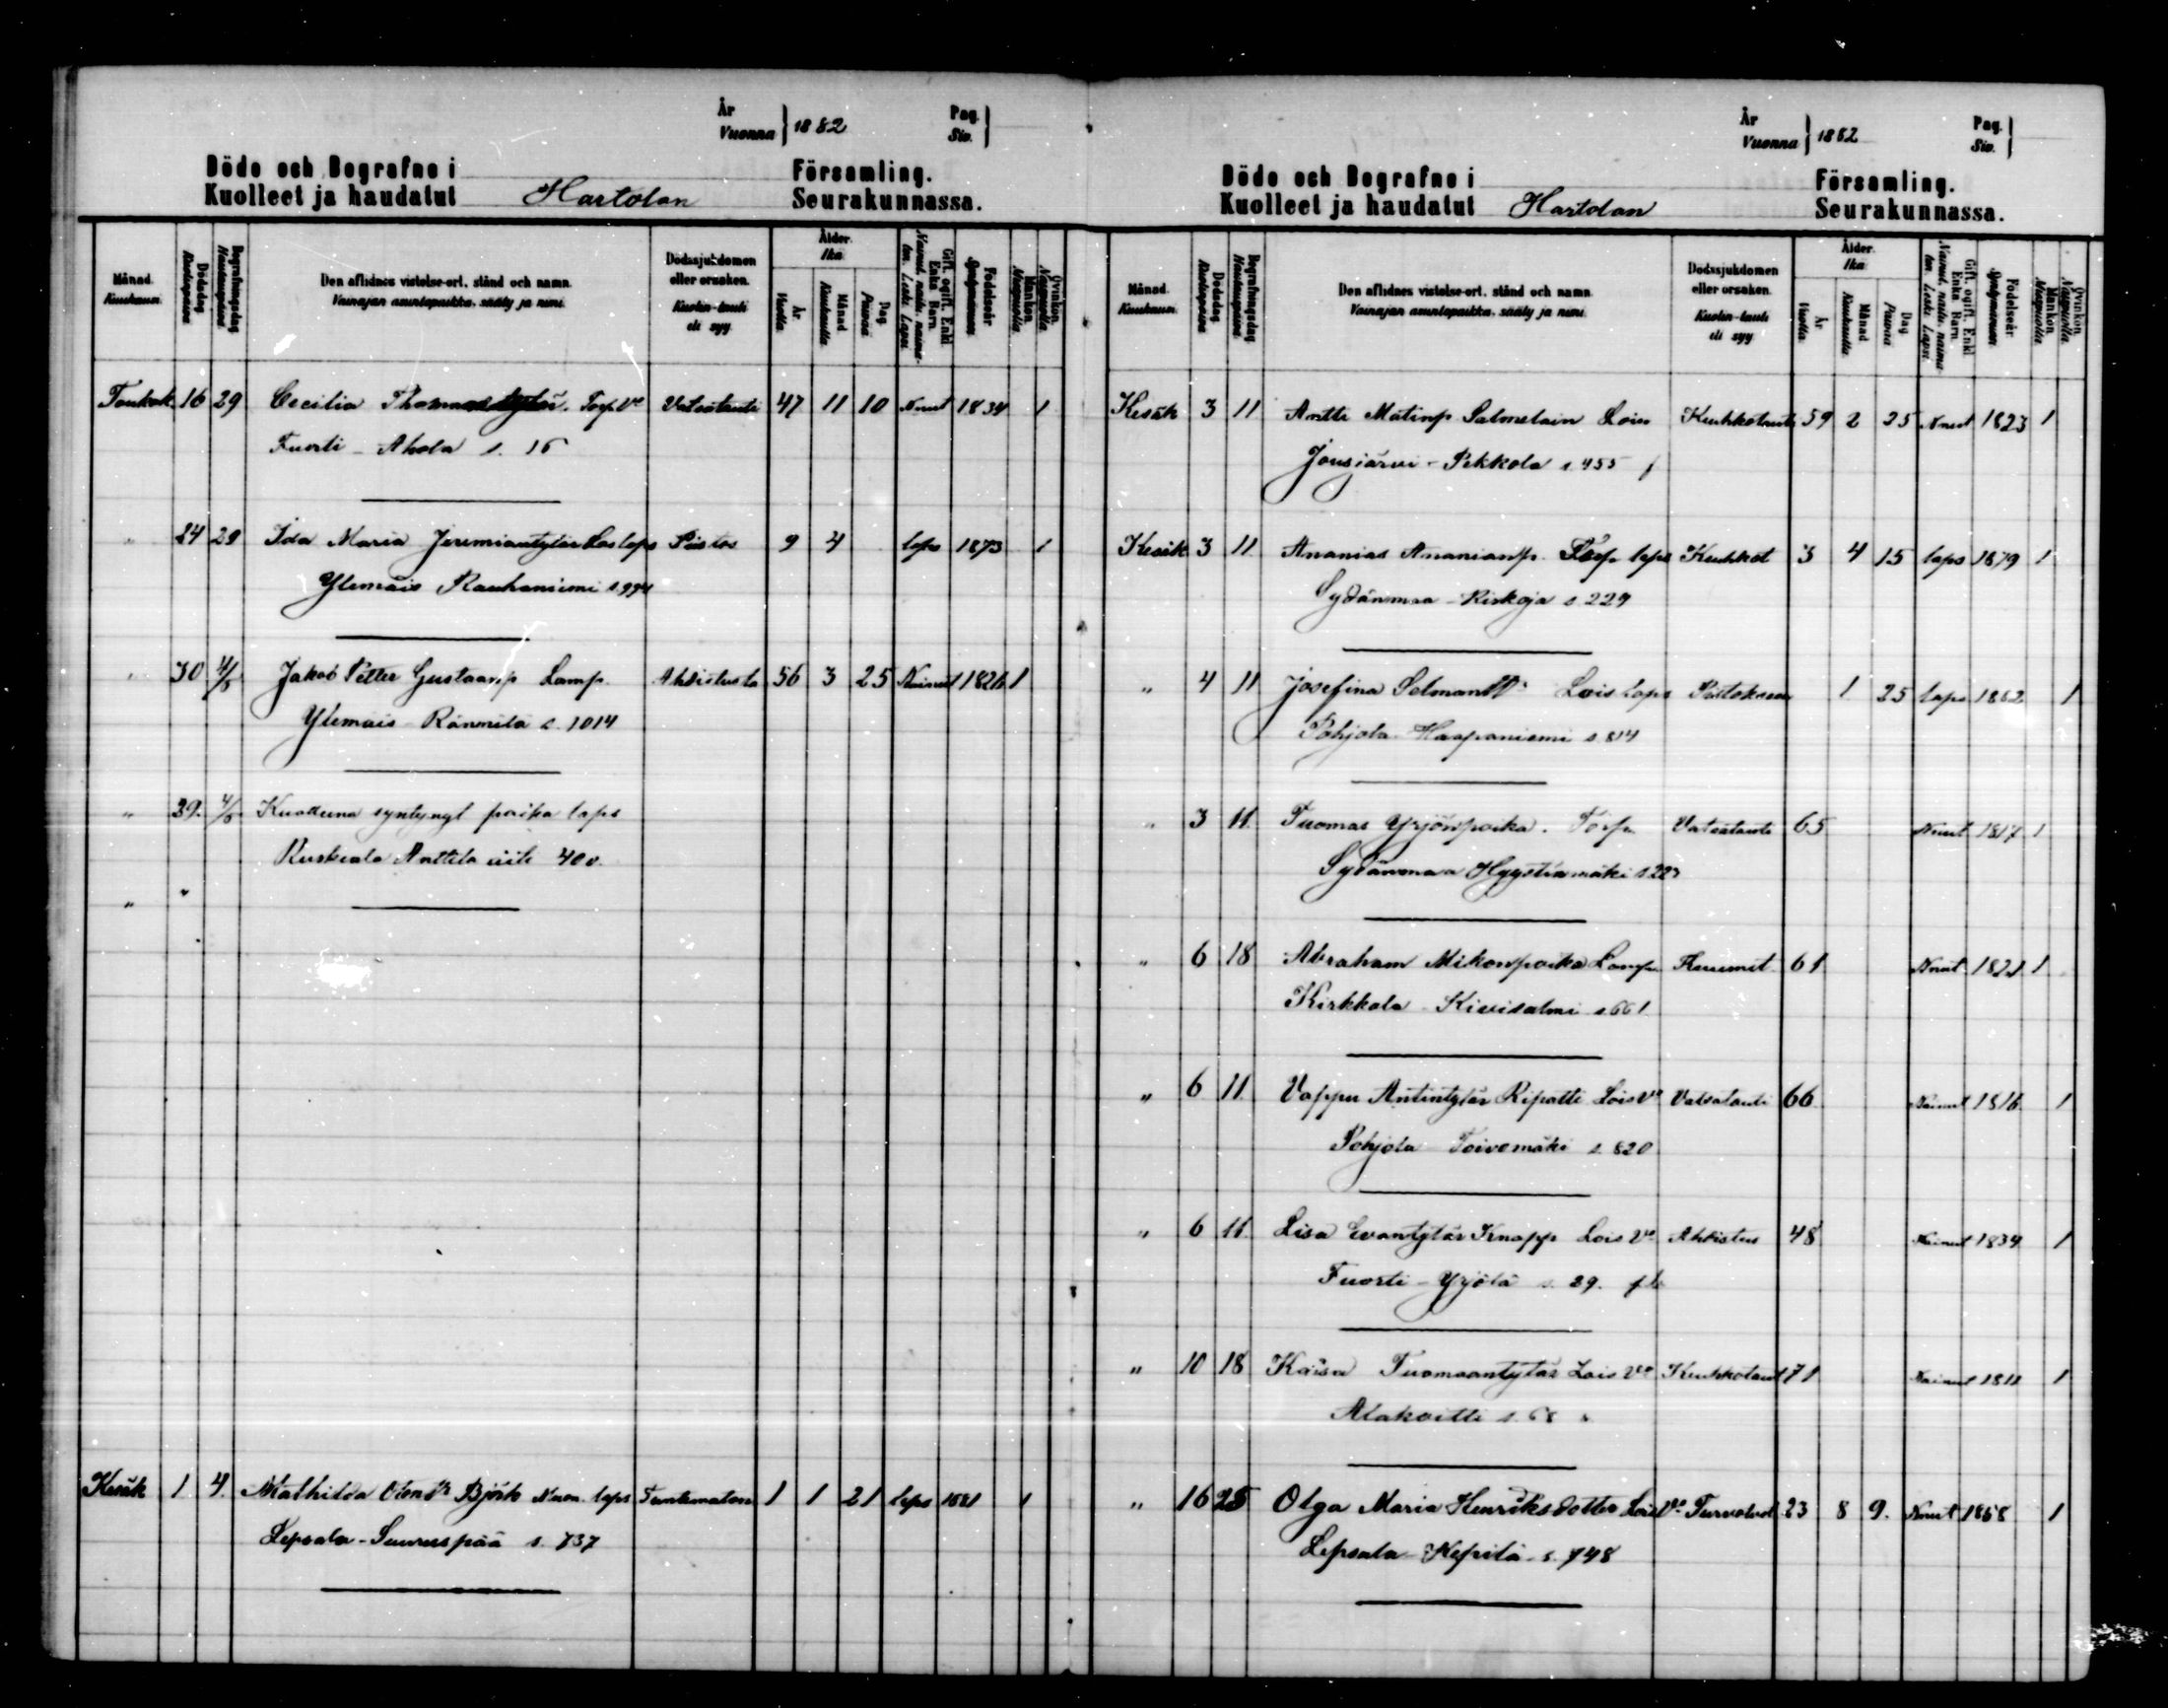 År
Vuonna } 1882
Pag.
Siv.
Döde och Begrafne i
Kuolleet ja haudatut Hartolan
Församling.
Seurakunnassa.
Månad.
Kuukausi.
Dödsdag
Kuolinpäivä
Begrafningsdag
Hautauspäivä
Den aflidnes vistelse-ort, stånd och namn.
Vainajan asuntopaikka, sääty ja nimi.
Dödssjukdomen
eller orsaken.
Kuolin-tauti
eli syy.
Ålder.
Ikä
År
Vuotta.
Månad
Kuukautta.
Dag
Päivää
Gift. ogift. Enkl.
Enka Barn.
Nainut. naim. naima-
ton. Leski. Lapsi.
Födelseår
Syntymävuosi
Mankön.
Miespuolia
Qvinkön.
Naispuolia
Toukok. 16 29 Cecilia Thomas tytär. Torp. Vo Vatsatauti 47 11 10 Nnut 1834 1
Fuorti - Ahola s. 16
" 24 29 Ida Maria Jeremiantytär Lois laps Pistos 9 4 laps 1873 1
Ylemäis Rauhaniemi s. 994
" 30 4/6 Jakob Petter Gustaanp Lamp. Ahdistusta 56 3 25 Nainut 1826 1
Ylemäis Ränmilä s. 1014
" 29. 4/6 Kuolleena syntyngt poika laps
Ruskeala Anttila äiti 40 v.
" "
Kesäk 1 4. Mathilda Björk laps Tuntematon 1 1 21 laps 1881 1
Lepsala - Suurenpää s. 737
År
Vuonna } 1882
Pag.
Siv.
Döde och Begrafne i
Kuolleet ja haudatut Hartolan
Församling.
Seurakunnassa.
Månad.
Kuukausi.
Dödsdag
Kuolinpäivä
Begrafningsdag
Hautauspäivä
Den aflidnes vistelse-ort, stånd och namn.
Vainajan asuntopaikka, sääty ja nimi.
Dödssjukdomen
eller orsaken.
Kuolin-tauti
eli syy
Ålder.
Ikä.
År
Vuotta.
Månad
Kuukautta.
Dag
Päivää
Gift. ogift. Enkl.
Enka Barn.
Nainut. naim. naima-
ton. Leski. Lapsi.
Födelseår
Syntymävuosi
Mankön.
Miespuolia
Qvinkön.
Naispuolia
Kesäk 3 11 Antti Matinp Salmelain Lois Keuhkotauti 59 2 25 Nnut 1823 1
Jousjärvi - Pekkola s. 455
Kesäk 3 11 Ananias Ananianp. Torp. laps Keuhkot 3 4 15 laps 1879 1
Sydänmaa - Riskoja s. 229
" 4 11 Josefina Selmantr Lois laps 1 25 laps 1882 1
Pohjola Haapaniemi s. 814
" 3 11 Tuomas Yrjönpoika. Torp. Vatsatauti 65 Nnut 1817 1
Sydänmaa Hyystänmäki s. 223
" 6 18 Abraham Mikonpoika Lamp. Kuumet 61 Nnut 1821 1
Kirkkola - Kivisalmi s. 661
" 6 11 Vappu Antintytär Ripatti Lois Vo Vatsatauti 66 Nainut 1816 1
Pohjola Toivomäki s. 820
" 6 11 Lisa Evantytär Knapp Lois Vo Ahdistus 48 Nainut 1834 1
Fuorti - Yrjölä s. 29.
" 10 18 Kaisa Tuomaantytär Lois Vo Keuhkotaut 71 Nainut 1811 1
Alakoitti s. 68
" 16 25 Olga Maria Henriksdotter Lois Vo Turvotud 23 8 9. Nnut 1858 1
Lepsala - Hepilä s. 748